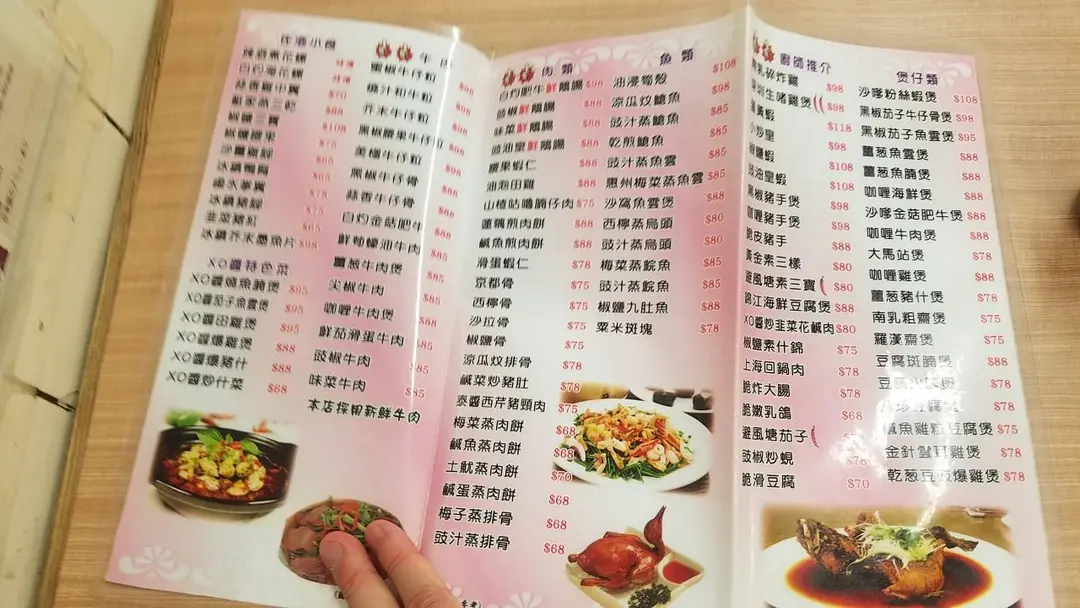 佐酒小食
冰鎮芥末墨魚片 $98
XO醬特色菜
XO醬茄子魚雲煲 $95
XO醬田雞煲 $95
XO醬爆雞煲 $88
XO醬爆豬什 $88
XO醬炒什菜 $68
牛肉
黑椒牛仔粒 $98
燒汁和牛粒
芥末牛仔粒 $98
黑椒腰果牛仔粒 $98
黑椒牛仔骨
蒜香牛仔骨
薑葱牛肉煲
尖椒牛肉 $85
咖喱牛肉煲 $88
鮮茄滑蛋牛肉 $85
豉椒牛肉 $85
味菜牛肉 $85
本店採用新鮮牛肉
肉類
白灼肥牛鮮鵝腸 $98
豉椒鮮鵝腸 $88
味菜鮮鵝腸 $88
豉油皇鮮鵝腸 $88
腰果蝦仁 $88
油泡田雞 $88
山楂咕嚕腩仔肉 $75
蓮藕煎肉餅 $88
鹹魚煎肉餅 $88
滑蛋蝦仁 $78
京都骨 $75
西檸骨 $75
沙拉骨 $75
椒鹽骨 $75
涼瓜炆排骨 $78
鹹菜炒豬肚 $78
泰醬西芹豬頸肉 $75
梅菜蒸肉餅 $68
鹹魚蒸肉餅 $68
土魷蒸肉餅 $70
鹹蛋蒸肉餅 $68
梅子蒸排骨 $68
豉汁蒸排骨 $68
魚類
油浸筍殼 $108
涼瓜炆鯰魚 $88
豉汁蒸鯰魚 $88
乾煎鯰魚 $88
豉汁蒸魚雲 $85
惠州梅菜蒸魚雲 $85
沙窩魚雲煲 $85
西檸蒸烏頭 $80
豉汁蒸烏頭 $80
梅菜蒸鯇魚 $85
豉汁蒸鯇魚 $85
椒鹽九肚魚 $88
粟米斑塊 $78
廚師推介
小炒皇 $98
椒鹽蝦 $108
豉油皇蝦 $108
黑椒豬手煲 $98
咖喱豬手煲 $98
脆皮豬手 $88
黃金素三樣 $80
避風塘素三寶 $80
錦江海鮮豆腐煲 $88
XO醬炒韭菜花鹹肉 $80
椒鹽素什錦 $75
上海回鍋肉 $78
脆炸大腸 $78
脆嫩乳鴿 $68
避風塘茄子
豉椒炒蜆 $78
脆滑豆腐 $70
煲仔類
沙嗲粉絲蝦煲 $108
黑椒茄子牛仔骨煲 $98
黑椒茄子魚雲煲 $95
薑葱魚雲煲 $88
薑葱魚腩煲 $88
咖喱海鮮煲 $88
沙嗲金菇肥牛煲 $88
咖喱牛肉煲 $88
大馬站煲 $78
咖喱雞煲 $88
薑葱豬什煲 $78
南乳粗齋煲 $75
羅漢齋煲 $75
豆腐斑腩煲 $88
鹹魚雞粒豆腐煲 $75
金針雲耳雞煲 $78
乾葱豆豉爆雞煲 $78